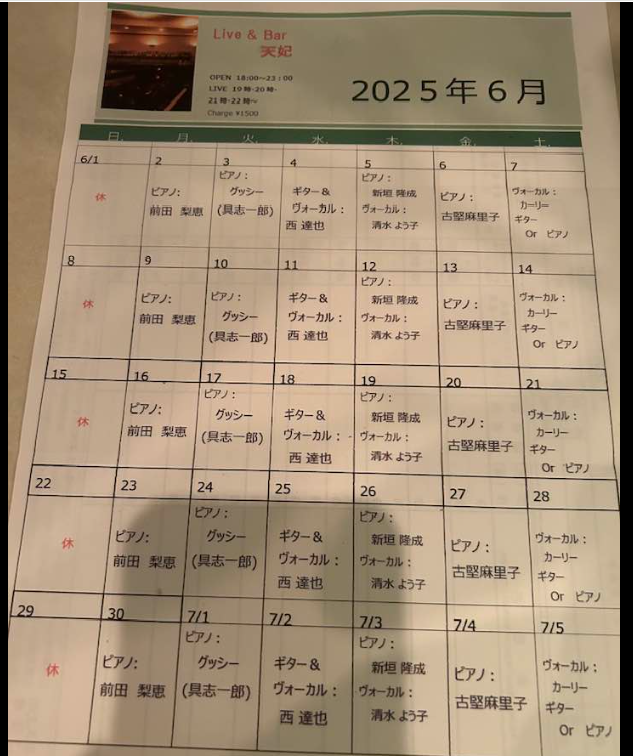 Live & Bar
天妃
OPEN 18:00～23:00
LIVE 19時·20時·
21時·22時～
Charge ¥1500
2025年6月
日. 月. 火. 水. 木. 金. 土.
6/1 2 3 4 5 6 7
休
ピアノ:
前田 梨恵
ピアノ:
グッシー
(具志一郎)
ギター&
ヴォーカル:
西 達也
ピアノ:
新垣 隆成
ヴォーカル:
清水 よう子
ピアノ:
古堅麻里子
ヴォーカル:
カーリー
ギター
Or ピアノ
8 9 10 11 12 13 14
休
ピアノ:
前田 梨恵
ピアノ:
グッシー
(具志一郎)
ギター&
ヴォーカル:
西 達也
ピアノ:
新垣 隆成
ヴォーカル:
清水 よう子
ピアノ:
古堅麻里子
ヴォーカル:
カーリー
ギター
Or ピアノ
15 16 17 18 19 20 21
休
ピアノ:
前田 梨恵
ピアノ:
グッシー
(具志一郎)
ギター&
ヴォーカル:
西 達也
ピアノ:
新垣 隆成
ヴォーカル:
清水 よう子
ピアノ:
古堅麻里子
ヴォーカル:
カーリー
ギター
Or ピアノ
22 23 24 25 26 27 28
休
ピアノ:
前田 梨恵
ピアノ:
グッシー
(具志一郎)
ギター&
ヴォーカル:
西 達也
ピアノ:
新垣 隆成
ヴォーカル:
清水 よう子
ピアノ:
古堅麻里子
ヴォーカル:
カーリー
ギター
Or ピアノ
29 30 7/1 7/2 7/3 7/4 7/5
休
ピアノ:
前田 梨恵
ピアノ:
グッシー
(具志一郎)
ギター&
ヴォーカル:
西 達也
ピアノ:
新垣 隆成
ヴォーカル:
清水 よう子
ピアノ:
古堅麻里子
ヴォーカル:
カーリー
ギター
Or ピアノ